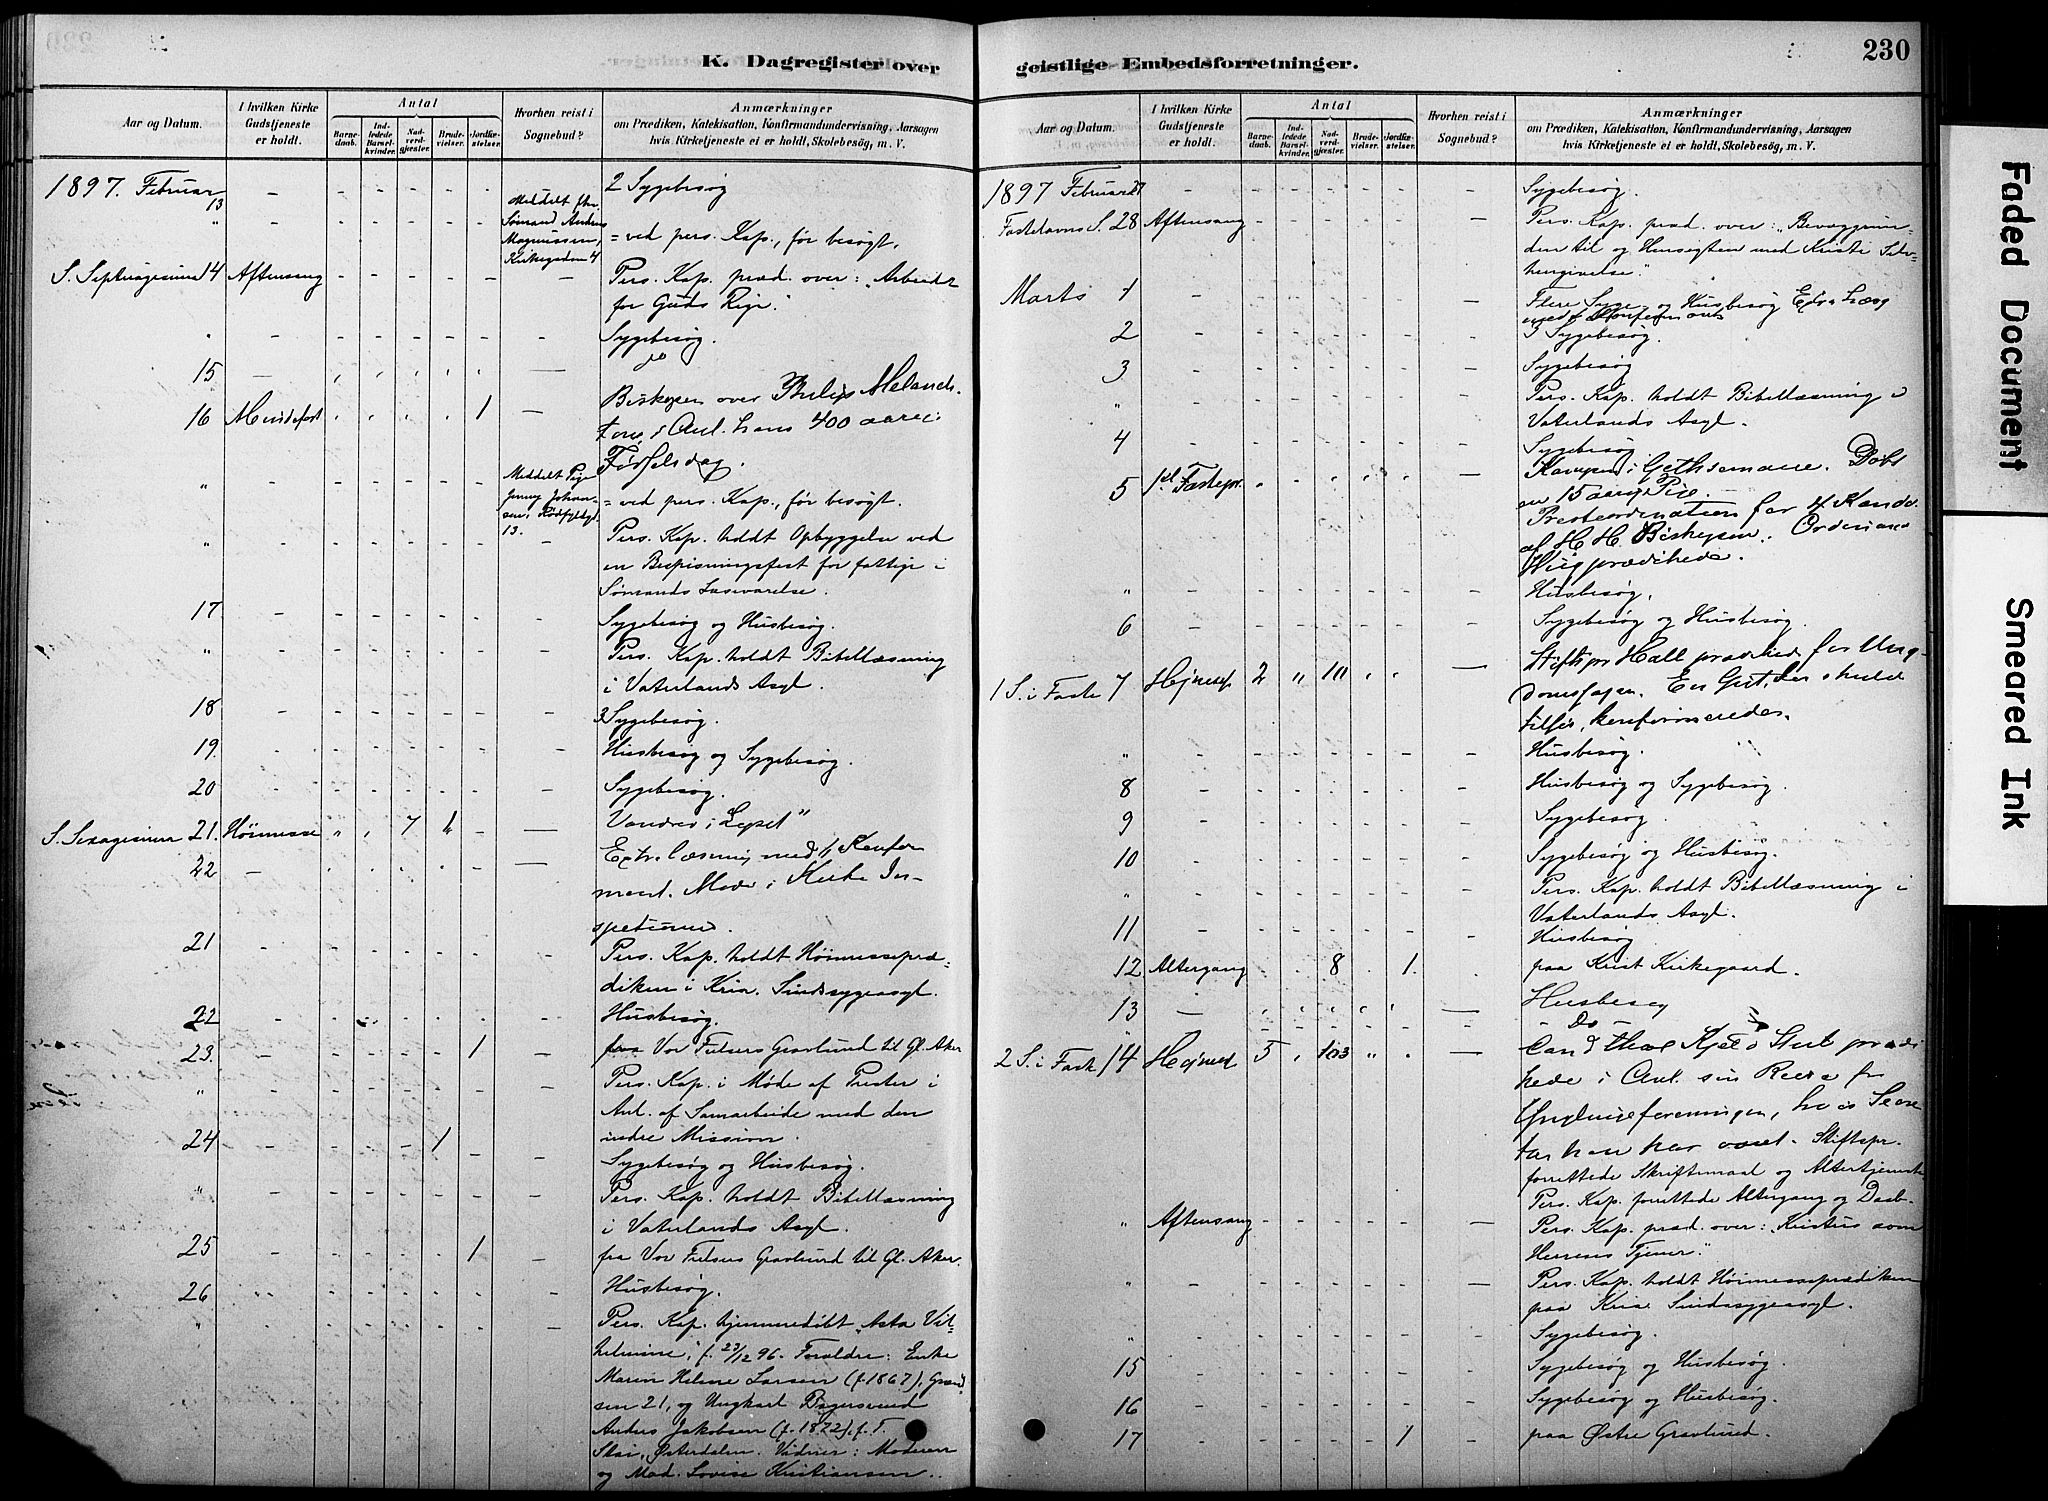 K. Dagregister over
Aar og Datum.
I hvilken Kirke Gudstjeneste er holdt.
Antal
Barnedaab.
Indledede Barselkvinder.
Nadverdgjæster.
Brudevielser.
Jordfæstelser.
Hvorhen reist i Sognebud?
Anmærkninger
om Prædiken, Katekisation, Konfirmandundervisning, Aarsagen
hvis Kirketjeneste ei er holdt, Skolebesøg, m. V.
1897. Februar 13 - - - - - - 2 Sygebesøg
" - - - - - Meddelt fhv. Sømand Anders Magnussen, Kirkegaden 4 = ved pers. Kap., før besøgt.
S. Septuagesima 14 Aftensang - - - - - - Pers. Kap. præd. over: "Arbeidet
for Guds Rige."
" - - - - - - - Sygebesøg.
15 — " " " " " — do
16 Mindefest " " " " 1 — Biskopen over Philip Melanch-
ton i Anl. hans 400 aarei
Fødselsdag.
" - - - - - - Meddelt Pige Jenny Johansen, 13. = ved pers. Kap., før besøgt.
" - - - - - - - Pers. Kap. holdt Opbyggelse ved
en Bespisningsfest for fattige i
Sømands
17 - - - - - - - Sygebesøg og Husbesøg.
" - - - - - - - Pers. Kap. holdt Bibellæsning
i Vaterlands Asyl.
18 - - - - - - - 3 Sygebesøg.
19. - - - - - - - Husbesøg og Sygebesøg.
20 - - - - - - - Sygebesøg.
S. Sexagesima 21. Høimesse " " 7 - — Vandrer i Lyset"
22 — " " " " " — Extralæsning med 1 Konfir
mant. Møde i Kirke In-
spetionen.
21 - - - - - - - Pers. Kap. holdt Høimessepræ-
diken i Kria. Sindssygeasyl.
22 - - - - - - - Husbesøg.
23. - - - - - 1 - fraa Vor Frelsers Gravlund til Gl. Aker
" - - - - - - - Pers. Kap. i Møde af Prester i
Anl. af Samarbeide med den
indre Mission.
24 - - - - 1 - - Sygebesøg og Husbesøg.
" - - - - - - - Pers. Kap. holdt Bibellæsning
i Vaterlands Asyl.
25 - - - - - 1 - fra Vor Frelsers Gravlund til Gl. Aker.
26 - - - - - - - Husbesøg.
" - - - - - - - Pers. Kap. hjemmedøbt "Asta Vil-
helmine," f. 23/12 96. Forældre: Enke
Maren Helene Larsen (f. 1867), Grønd
sen 21, og Ungkarl Bagersvend
Anders Jakobsen (f. 1872), f. T.
Skai, Østerdalen. Vidner: Moderen
og Mad. Lovise Kristiansen.
geistlige Embedsforretninger.
230
Aar og Datum.
I hvilken Kirke Gudstjeneste er holdt.
Antal
Barnedaab.
Indledede Barselkvinder.
Nadverdgjæster.
Brudevielser.
Jordfæstelser.
Hvorhen reist i Sognebud?
Anmærkninger
om Prædiken, Katekisation, Konfirmandundervisning, Aarsagen
hvis Kirketjeneste ei er holdt, Skolebesøg, m. V.
1897 Februar 27 - - - - - - - Sygebesøg.
Fastelavns S. 28 Aftensang - - - - - — Pers. Kap. præd. over: "Bevæggrun-
den til og Hensigten med Kristi Selv-
hengivelse."
Marts 1 - - - - - - — Flere Syge- og Husbesøg Extra Læsg
med Konfirmant
2 - - - - - - - 3 Sygebesøg.
3 - - - - - - - Sygebesøg
" - - - - - - - Pers. Kap. holdt Bibellæsning i
Vaterlands Asyl.
4 - - - - - - - Sygebesøg
5 1ste Fastepr. " " " " " — Kampen i Gethsemane. Døbt
en 15 aarig Pige.
Presteordination for 4 Kandd.
af H. H. Biskopen. Ordinand
Hiig prædikede.
" - - - - - - - Husbesøg.
6 - - - - - - - Sygebesøg og Husbesøg.
1 S. i Faste 7 Høimesse 2 " 10 " " — Stiftspr Hall prædiked for Ung-
domssagen. En Gut, der skulde
tilsjøs, konfirmeredes.
" - - - - - - - Husbesøg.
8 - - - - - - - Husbesøg og Sygebesøg.
9 - - - - - - - Sygebesøg.
10 - - - - - - - Sygebesøg og Husbesøg.
" - - - - - - - Pers. Kap. holdt Bibellæsning i
Vaterlands Asyl.
11 - - - - - - - Husbesøg
12 Altergang - - 8 - 1. - paa Krist Kirkegaard.
13 — " " " " " — Husbesøg
" - - - - - - - - Do -
2 S. i Fast 14 Høimes 5 " 103 " " — Cand theol Kjeld Stub prædi
kede i Anl. sin Reise for
Ynglingeforeningen, hvis Sekre
tær han har været. Stiftspr.
forrettede Skriftemaal og Altertjeneste
Pers. Kap. forrettede Altergang og Daab-
" Aftensang - - - - - — Pers. Kap. præd. over: Kristus som
Herrens Tjener."
" - - - - - - — Pers. Kap. holdt Høimesseprædiken
paa Kria Sindssygeasyl.
" - - - - - - - Sygebesøg.
15 - - - - - - - Sygebesøg og Husbesøg.
16 - - - - - - - Sygebesøg og Husbesøg.
17 - - - - - 1 - paa Østre Gravlund.
Faded Document
Smeared Ink